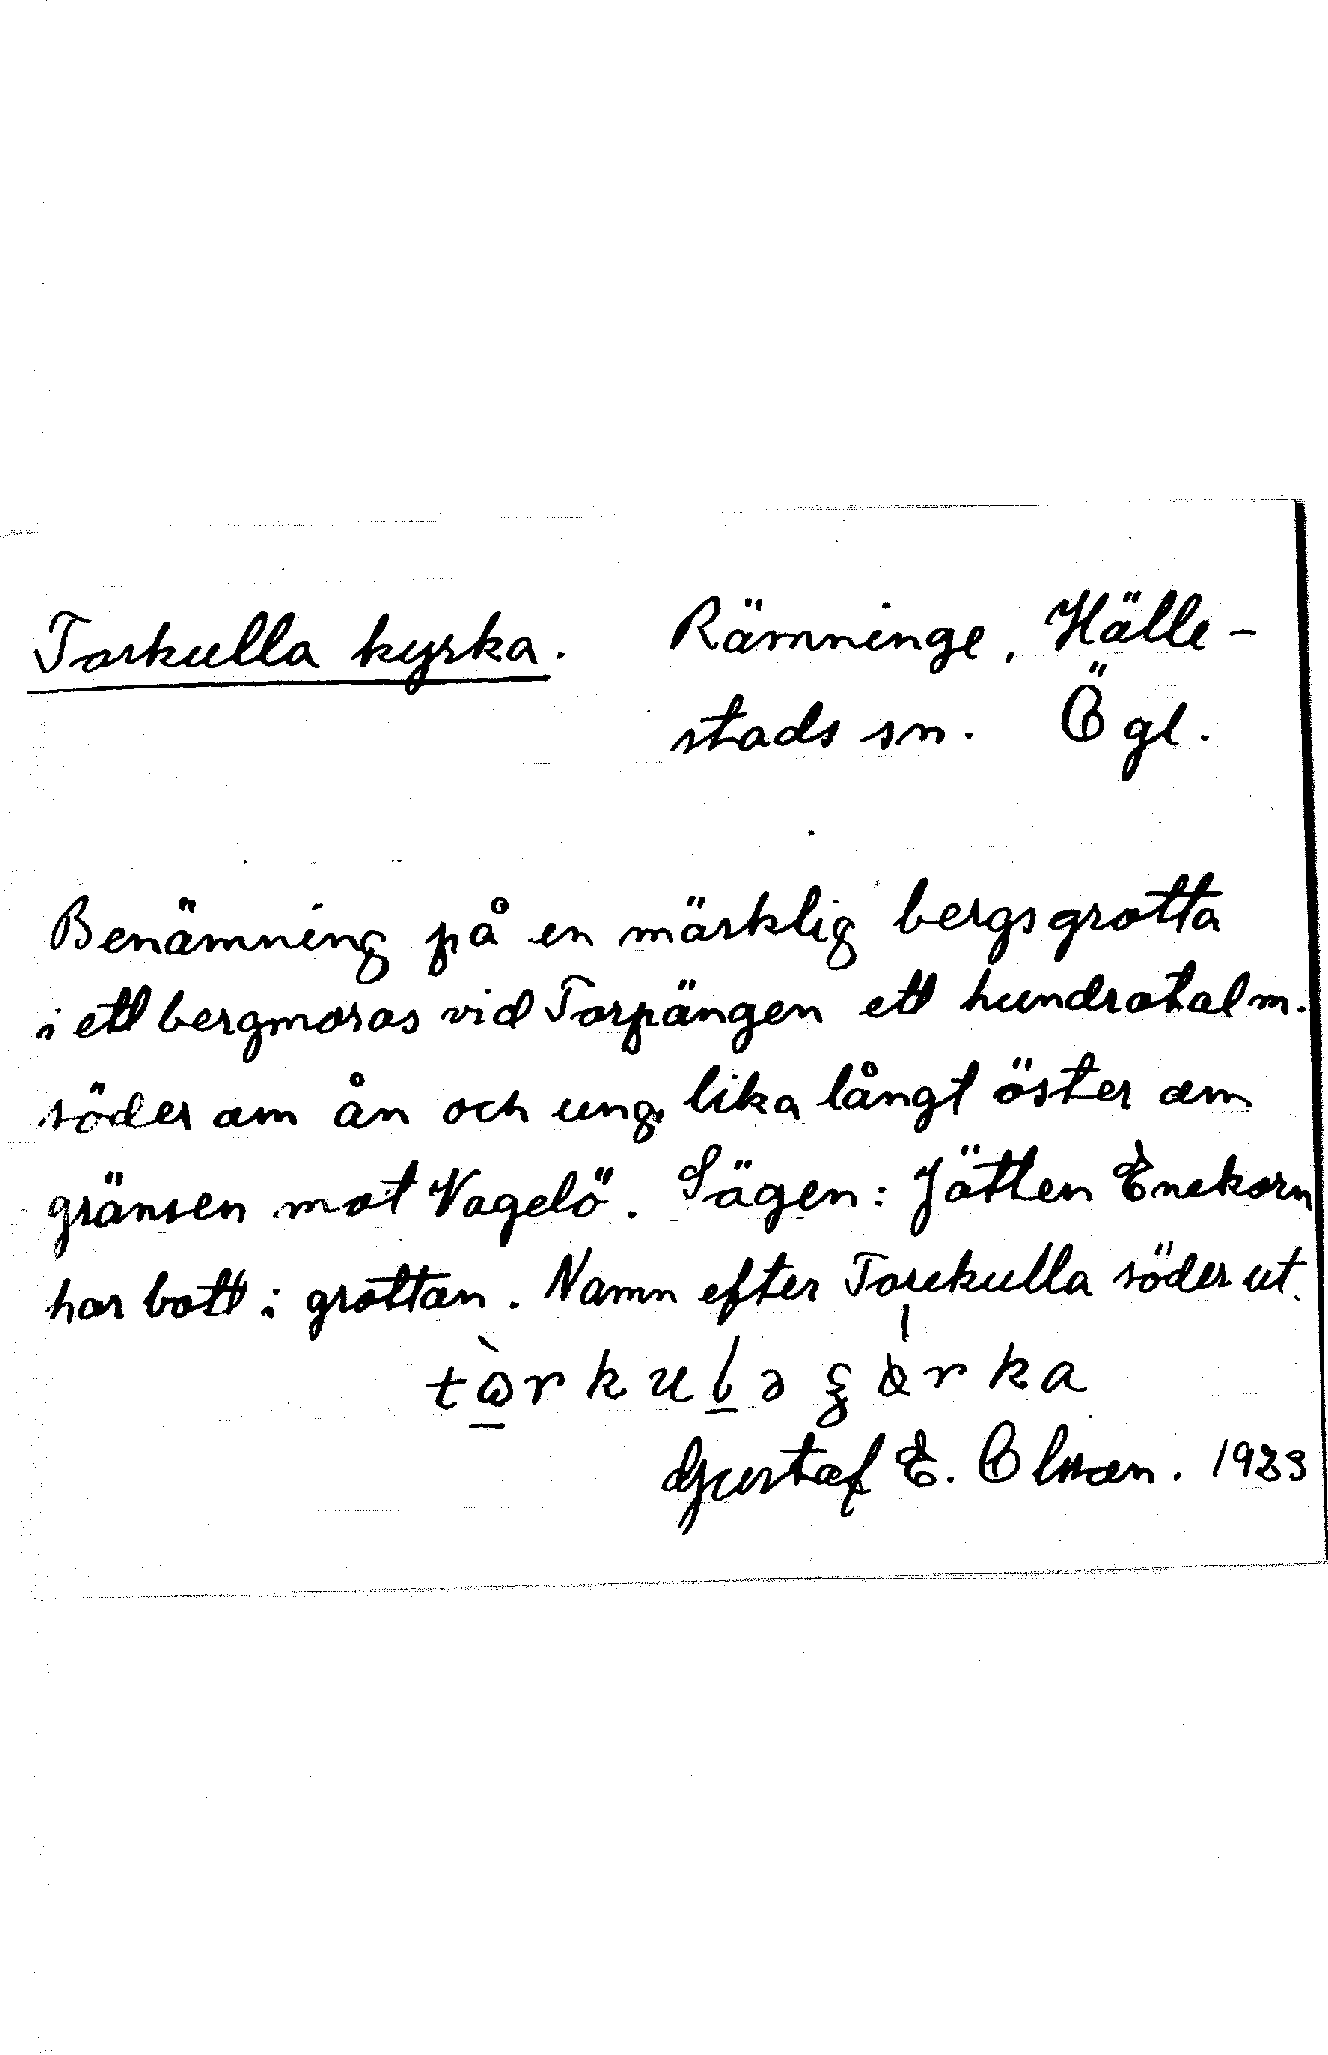 Torkulla kyrka. Rämninge, Hälle-
stads sn. Ögl.
Benämning på en märklig bergsgrotta
i ett bergmoras vid Torpängen ett hundratal m.
söder om ån och ung. lika långt öster om
gränsen mot Vagelö. Sägen: Jätten Enekorn
har bott i grottan. Namn efter Torekulla söderut.
Gustaf E. Olsson. 1933